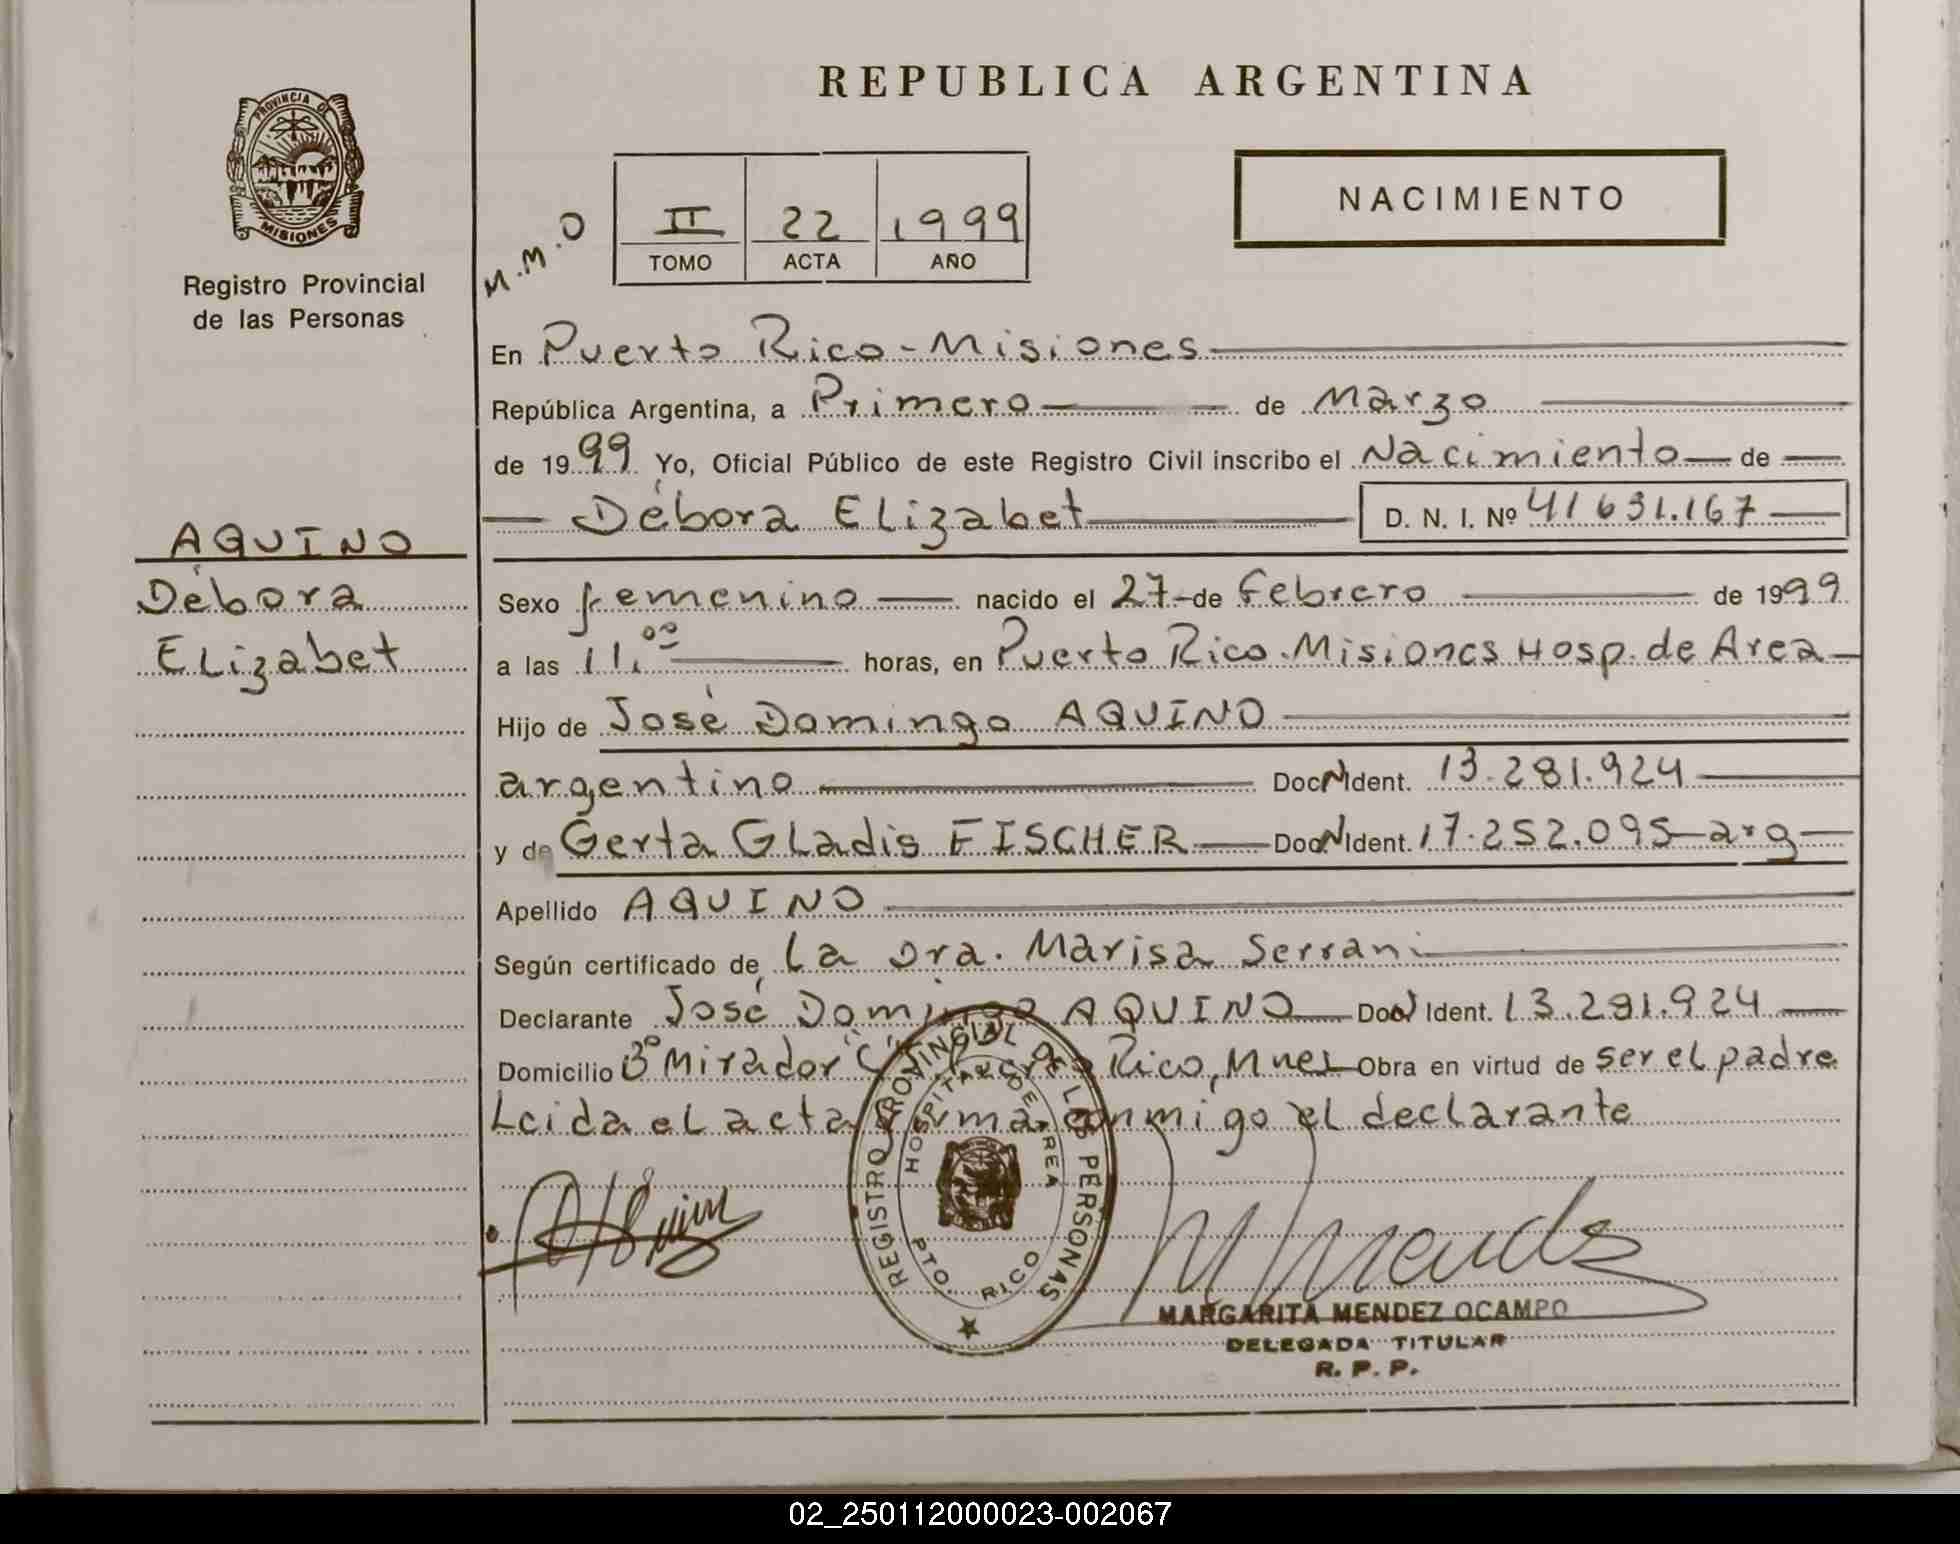 REPUBLICA ARGENTINA
PROVINCIA DE
MISIONES
Registro Provincial
de las Personas
NACIMIENTO
M.M.O
II 22 1999
TOMO ACTA AÑO
En Puerto Rico-Misiones
República Argentina, a Primero de Marzo
de 1999 Yo, Oficial Público de este Registro Civil inscribo el Nacimiento de
Débora Elizabet D. N. I. Nº 41 631.167
AQUINO
Débora
Elizabet
Sexo femenino nacido el 27 de Febrero de 1999
a las 11.00 horas, en Puerto Rico.Misiones Hosp. de Area
Hijo de José Domingo AQUINO
argentino Doc N Ident. 13.281.924
y de Gerta Gladis FISCHER Doc N Ident. 17.252.095 arg
Apellido AQUINO
Según certificado de La Dra. Marisa Serrani
Declarante José Domingo AQUINO Doc N Ident. 13.281.924
Domicilio Bº Mirador "C" Puerto Rico, Mnes Obra en virtud de ser el padre
Leida el acta firma conmigo el declarante
REGISTRO PROVINCIAL DE LAS PERSONAS
HOSPITAL DE AREA
PTO. RICO
MARGARITA MENDEZ OCAMPO
DELEGADA TITULAR
R. P. P.
02_250112000023-002067